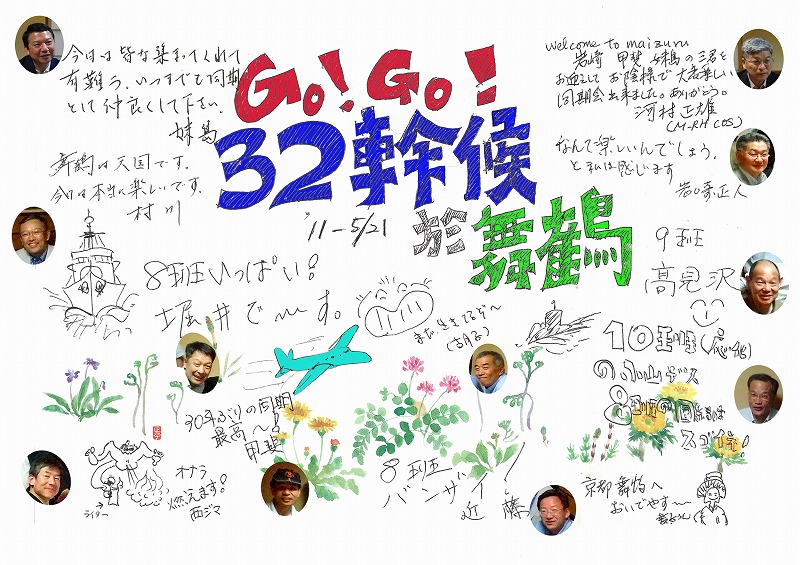 Go! Go!
32幹候
'11-5/21
於 舞鶴
今日は皆な集まってくれて
有難う、いつまでも同期
として仲良くして下さい。
妹島
舞鶴は天国です。
今日は本当に楽しいです。
村川
welcome to maizuru
岩崎 甲斐 妹島の三君を
お迎えして お陰様で大変楽しい
同期会出来ました。ありがとう。
河村正雄
なんて楽しいんでしょう。
と私は感じます
岩崎正人
9班
高見沢
8班いっぱい!
堀井で〜す。
まだ生きてるぞ〜
10班
8班
30年ぶりの同期
最高〜!
甲斐
オナラ
燃えます!
西ジマ
ライター
8班
バンザイ!
近藤
京都舞鶴へ
おいでやす〜